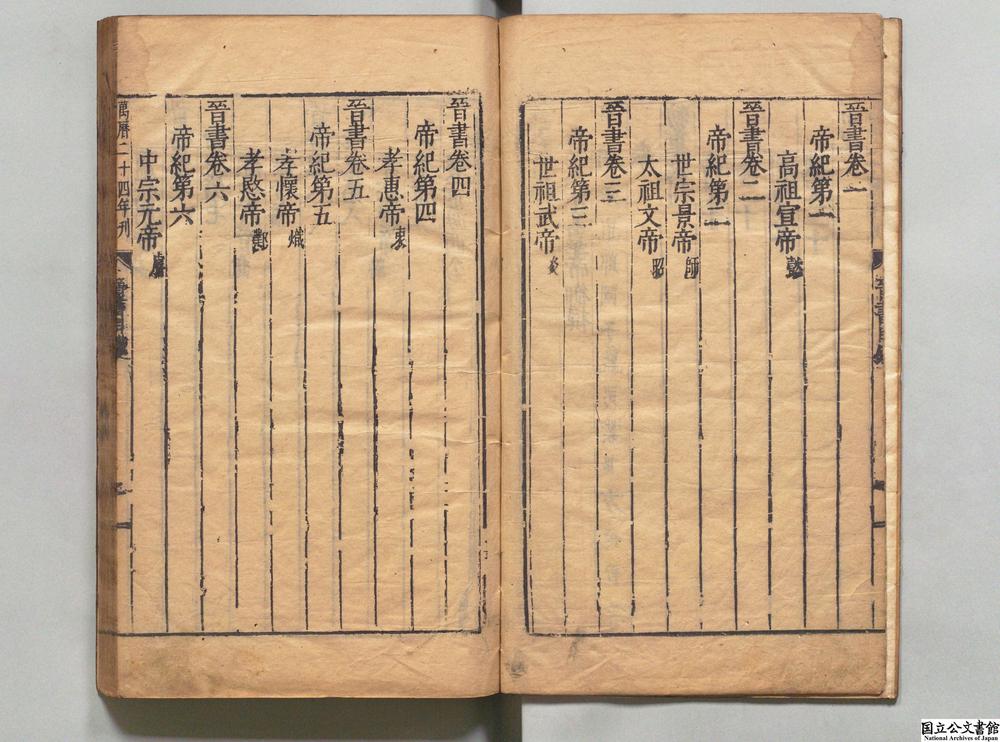 晉書卷一
帝紀第一
高祖宣帝懿
晉書卷二
帝紀第二
世宗景帝師
太祖文帝昭
晉書卷三
帝紀第三
世祖武帝炎
晉書卷四
帝紀第四
孝惠帝衷
晉書卷五
帝紀第五
孝懷帝熾
孝愍帝鄴
晉書卷六
帝紀第六
中宗元帝睿
萬曆二十四年刊
国立公文書館
National Archives of Japan